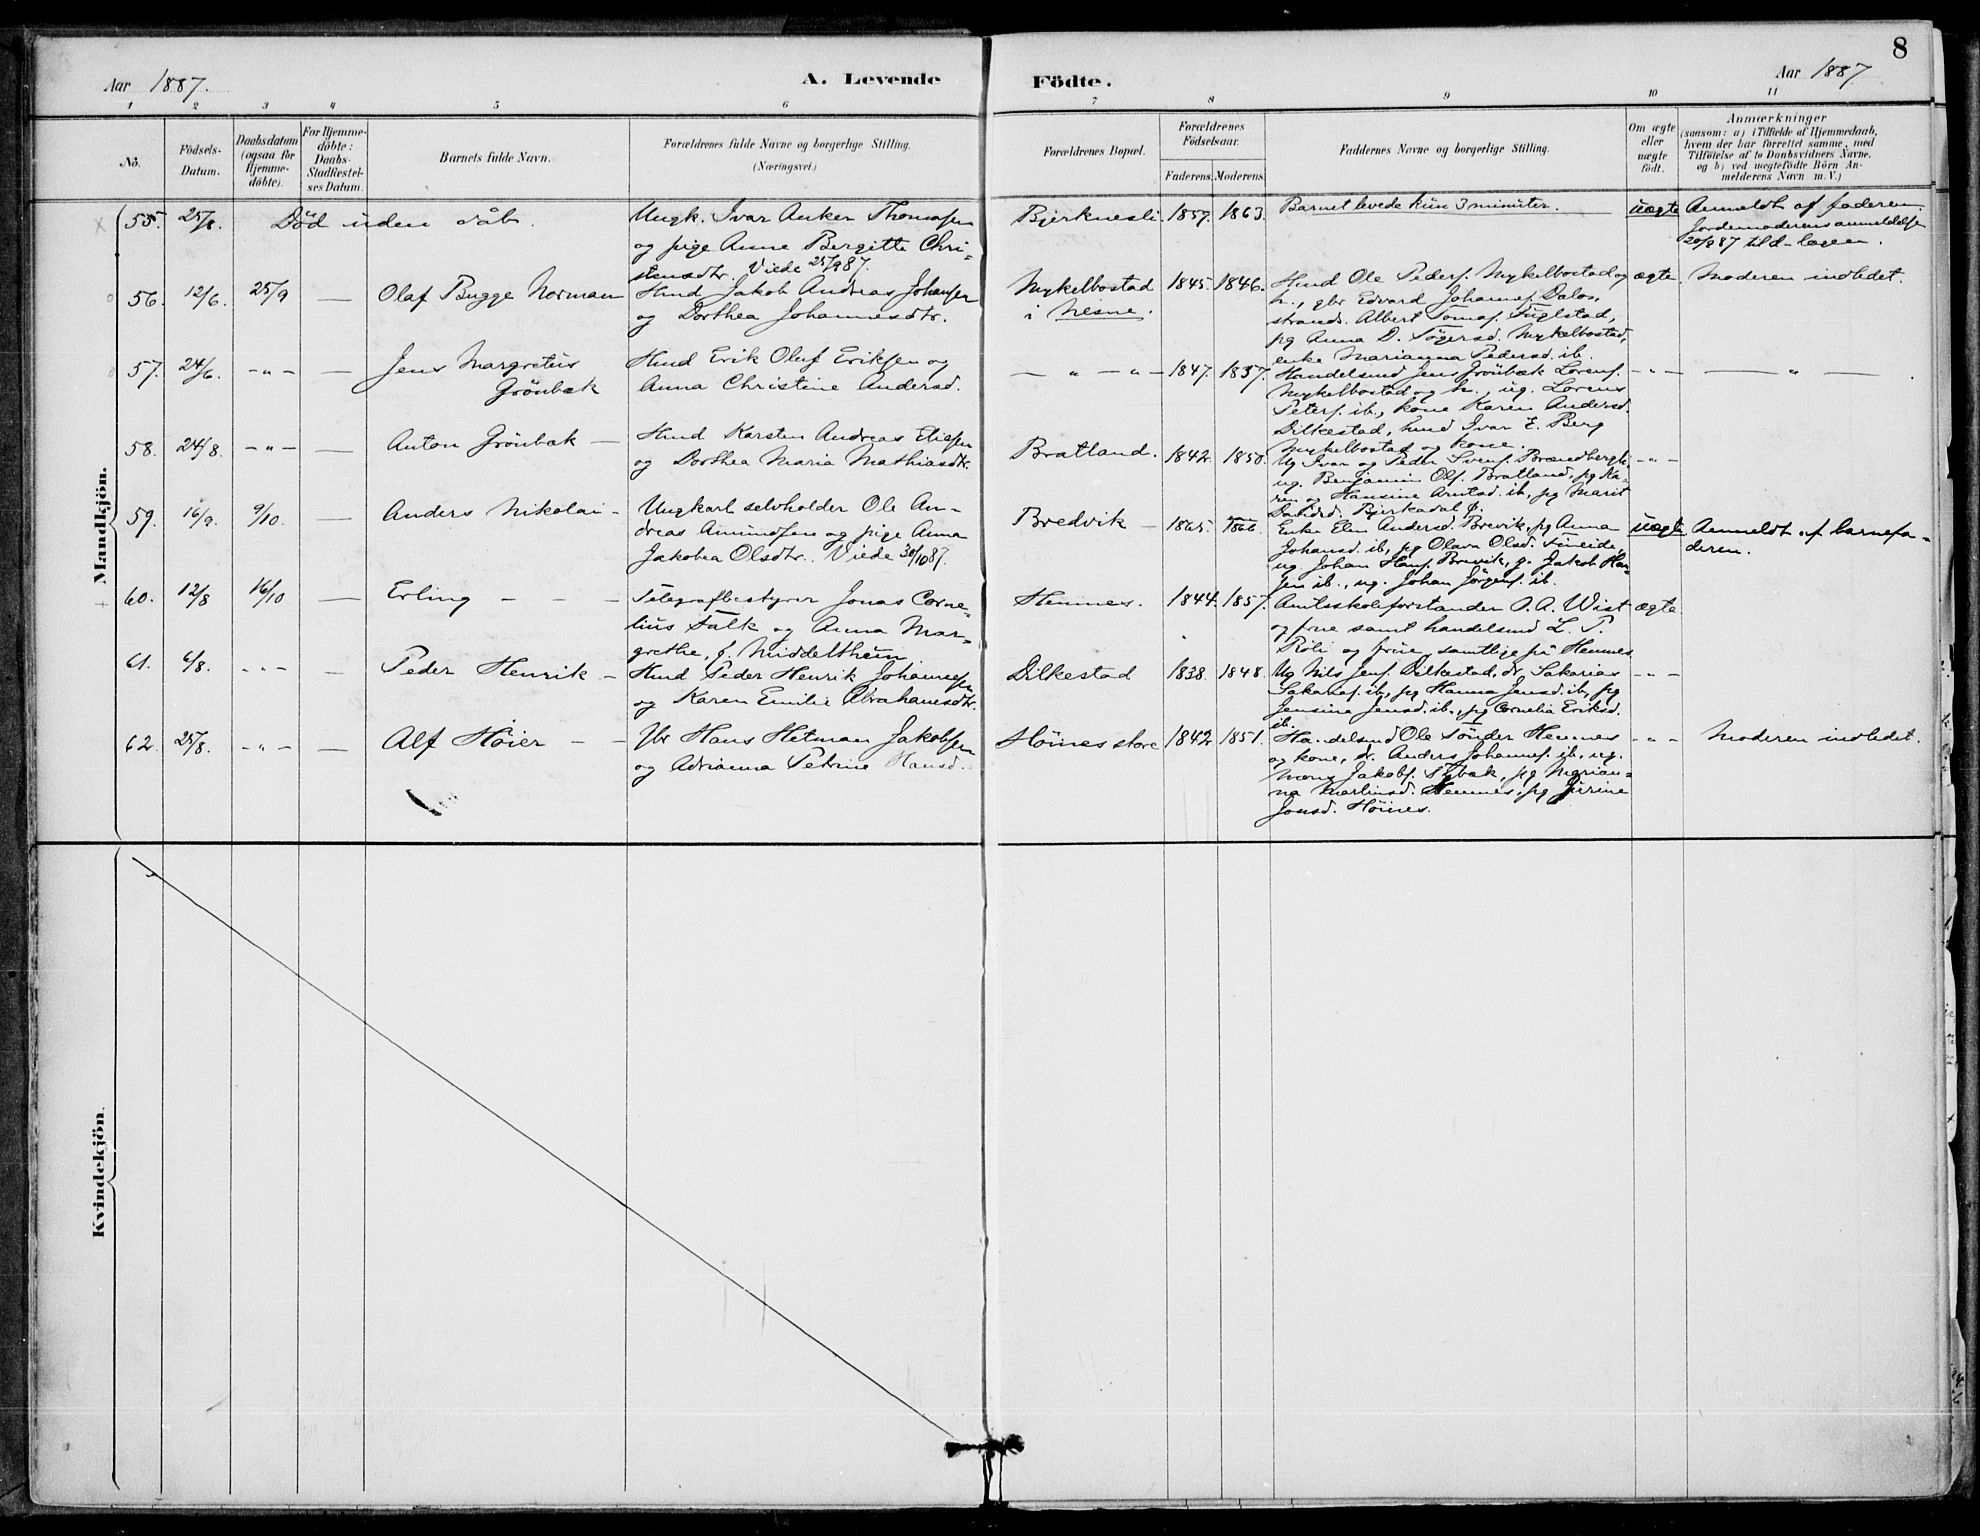 8
Aar 1887. A. Levende Födte. Aar 1887
1 2 3 4 5 6 7 8 9 10 11
No.
Födsels-
Datum.
Daabsdatum
(ogsaa for
Hjemme-
döbte).
For Hjemme-
döbte:
Daabs-
Stadfæstel-
ses Datum.
Barnets fulde Navn.
Forældrenes fulde Navne og borgerlige Stilling.
(Næringsvei.)
Forældrenes Bopæl.
Forældrenes
Födselsaar.
Faderens. Moderens.
Faddernes Navne og borgerlige Stilling.
Om ægte
eller
uægte
födt.
Anmærkninger
(saasom: a) i Tilfælde af Hjemmedaab,
hvem der har forrettet samme, med
Tilföielse af to Daabsvidners Navne,
og b) ved uegtefödte Börn An-
melderens Navn m. V.)
Mandkjön.
55. 25/8. Död uden dåb.
Ungk. Ivar Anker Thomasen
og pige Anne Bergitte Chri-
stensdtr. Viede 25/9 87.
Bjerknesli 1857. 1863. Barnet levede kun 3 minuter. uægte
Anmeldt af faderen.
Jordemoderens anmeldelse
20/9 87 til d-lægen.
56. 12/6. 25/9 — Olaf Bugge Norman
Hmd Jakob Andreas Johansen
og Dorthea Johannesdtr.
Nykelbostad
i Nesne.
1845. 1846.
Hmd Ole Peders. Nykelbostad og
h., gbr Edvard Johannes. Dalos,
strands. Albert Tomas. Fuglstad,
pg Anna D. Tögersd. Nykelbostad,
enke Marianna Pedersd. ib.
ægte. Moderen indledet.
57. 24/6. -"- — Jens Margretus
Grönbæk
Hmd Erik Oluf Eriksen og
Anna Christine Andersd.
— " — " — 1847. 1837.
Handelsmd Jens Grönbæk Lorens.
Nykelbostad og h., ug. Lorens
Peters. ib., kone Karen Andersd.
Dilkestad, hmd Ivar E. Berg
Nykelbostad og kone.
-"- — " —
58. 24/8. -"- — Anton Grönbæk —
Hmd Karsten Andreas Eliasen
og Dorthea Maria Mathiasdtr.
Bratland. 1842. 1850.
Ug Ivar og Peder Svens. Brændbergli,
ug. Benjamin Ols. Bratland, pg Ka-
ren og Hansine Arntsd. ib., pg Marit
Davidsd. Bjerkadal Ø.
-"-
59. 16/9. 9/10. — Anders Nikolai —
Ungkarl selvholder Ole An-
dreas Amundsen og pige Anna
Jakobea Olsdtr. Viede 30/10 87.
Bredvik — 1865. 1866.
Enke Elen Andersd. Brevik, pg Anna
Johansd. ib., pg Olava Olsd. Fineide,
ug. Johan Hans. Brevik, g. Jakob Han-
sen ib., ug. Johan Jörgens. ib.
uægte Anmeldt af barnefa-
deren.
60. 12/8 16/10 — Erling — — —
Telegrafbestyrer Jonas Corne-
lius Falk og Anna Mar-
grethe, f. Middelthun
Hemnes. 1844. 1857.
Amtsskoleforstander O. A. Wist
og frue samt handelsmd L. P.
og frue, samtlige på Hemnes
ægte.
61. 6/8. -"- — Peder Henrik —
Hmd Peder Henrik Johannesen
og Karen Emilie Abrahamsdtr.
Dilkestad 1838. 1848.
Ug Nils Jens. Dilkestad, dr. Sakarias
Sakarias. ib., pg Hanna Jensd. ib., pg
Jensine Jensd. ib., pg Cornelia Eriksd.
ib.
-"-
62. 25/8. -"- — Alf Höier — —
Gbr Hans Hetman Jakobsen
og Adrianna Petrine Hansd.
Höines store 1842. 1851.
Handelsmd Ole Tönder Hemnes
og kone, dr. Anders Johannes. ib., ug.
Mons Jakobs. , pg Marian-
na Martinsd. Hemnes, pg Jörine
Jonsd. Höines.
-"- Moderen indledet.
Kvindekjön.